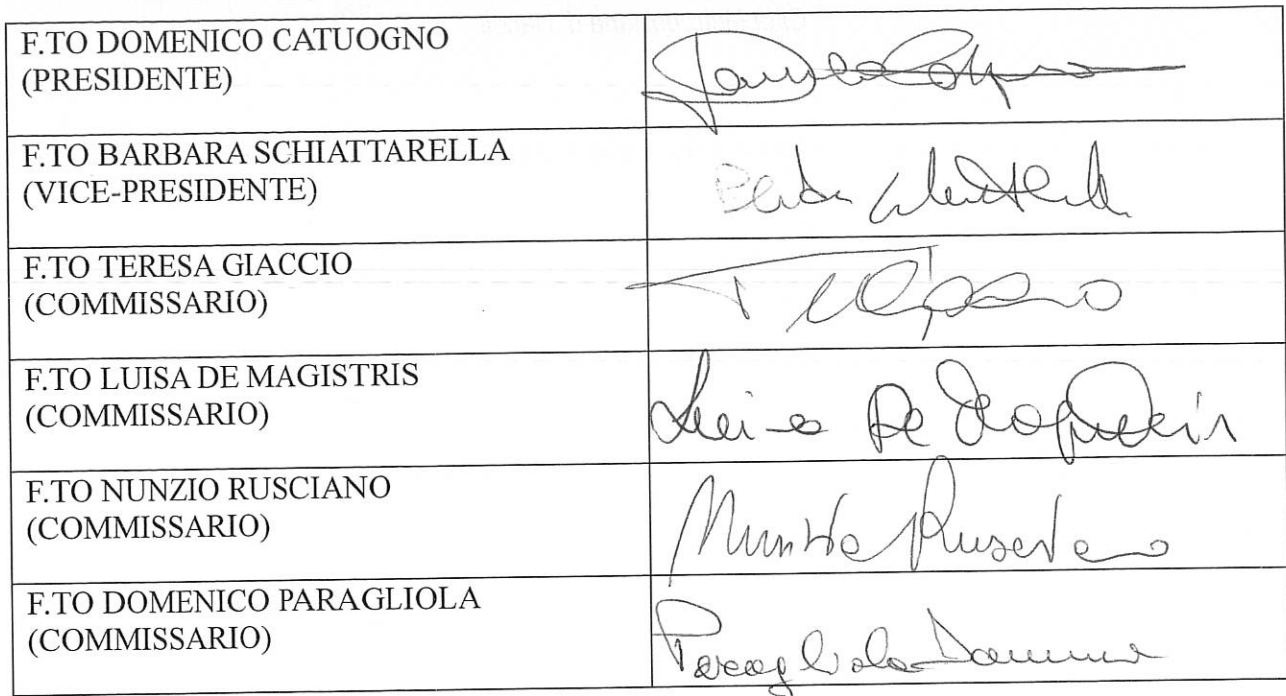 F.TO DOMENICO CATUOGNO
(PRESIDENTE)
F.TO BARBARA SCHIATTARELLA
(VICE-PRESIDENTE)
F.TO TERESA GIACCIO
(COMMISSARIO)
F.TO LUISA DE MAGISTRIS
(COMMISSARIO)
Luisa De Magistris
F.TO NUNZIO RUSCIANO
(COMMISSARIO)
Nunzio Rusciano
F.TO DOMENICO PARAGLIOLA
(COMMISSARIO)
Paragliola Domenico